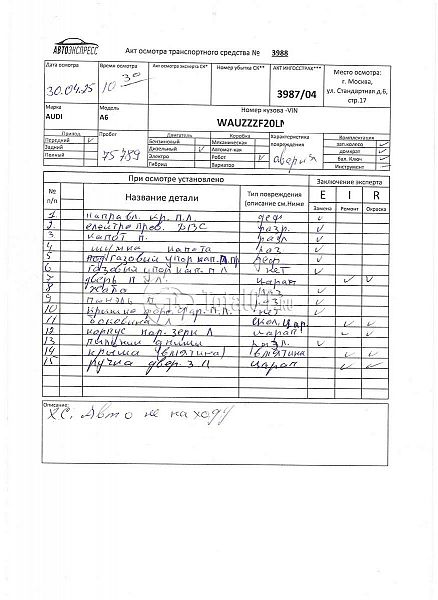 АВТОЭКСПРЕСС
Акт осмотра транспортного средства № 3988
Дата осмотра Время осмотра Акт осмотра эксперта СК* Номер убытка СК** АКТ ИНГОССТРАХ***
30.04.15 10 30 3987/04
Место осмотра:
г. Москва,
ул. Стандартная д.6,
стр.17
Марка Модель Номер кузова -VIN
AUDI A6 WAUZZZF20LN
Привод Пробег Двигатель Коробка Характеристика повреждения Комплектация
Передний Бензиновый Механическая зап.колесо
Задний Дизельный Автомат-кая домкрат
Полный Электро Робот Бал. Ключ
Гибрид Вариатор Инструмент
75789
аварийн
При осмотре установлено Заключение эксперта
№ п/п Название детали Тип повреждения (описание см.Ниже E I R
Замена Ремонт Окраска
1 направл. кр. П.Л. деф
2 електро пров. ДВС разр.
3 капот п. разл
4 шумка капота раз
5 под газовый упор кап. П.П деф
6 газовый упор кап. П Л нет
7 дверь П Л. царап
8 раз
9 панель п раз
10 крышка П.Л. нет
11 Л скол, цар.
12 корпус нар. зерк Л царап
13
14 крыша (вмятина) вмятина
15 ручка двер. З Л царап
Описание:
Х.С. Авто не на ходу